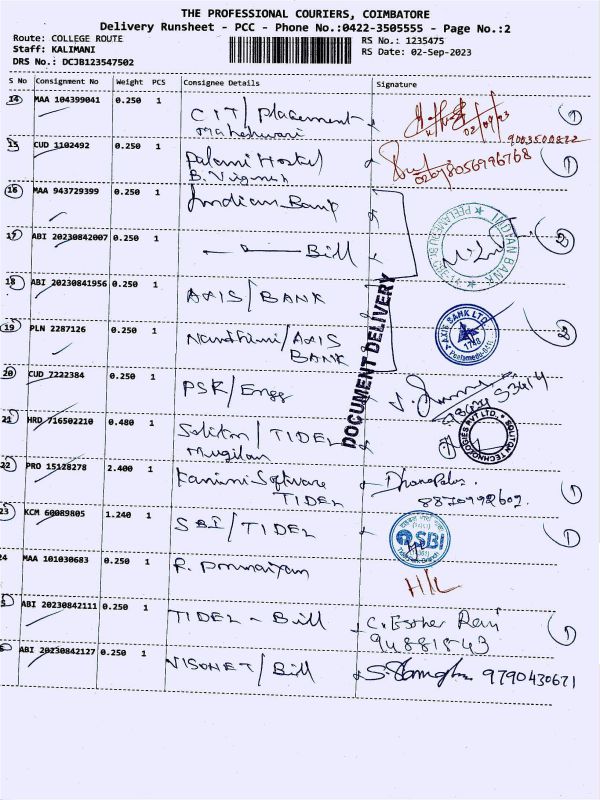 THE PROFESSIONAL COURIERS, COIMBATORE
Delivery Runsheet - PCC - Phone No.:0422-3505555 - Page No.:2
Route: COLLEGE ROUTE
RS No.: 1235475
Staff: KALIMANI
RS Date: 02-Sep-2023
DRS No.: DCJB123547502
S No Consignment No Weight PCS Consignee Details Signature
14 MAA 104399041 0.250 1 CIT/Placement
Maheshwari
02/09/23
9003500822
1
15 CUD 1102492 0.250 1 Palami Hostel
B. Vignesh
8056996768
1
16 MAA 943729399 0.250 1 Indian Bank
INDIAN BANK
2
17 ABI 20230842007 0.250 1 Bill
DOCUMENT DELIVERY
18 ABI 20230841956 0.250 1 AXIS/BANK
AXIS BANK LTD.
2
19 PLN 2287126 0.250 1 /AXIS
BANK
20 CUD 7222384 0.250 1 PSR/Engg
21 HRD 716502210 0.480 1 Soliton/TIDEL
Mugilan
SOLITON TECHNOLOGIES PVT LTD.
22 PRO 15128278 2.400 1 Kanini Software
TIDEL
1
23 KCM 60089805 1.240 1 SBI/TIDEL
SBI
1
24 MAA 101030683 0.250 1 R.
H/L
ABI 20230842111 0.250 1 TIDEL - Bill
C. Esther Rani
94881543
1
ABI 20230842127 0.250 1 VISONET/Bill
9790430671